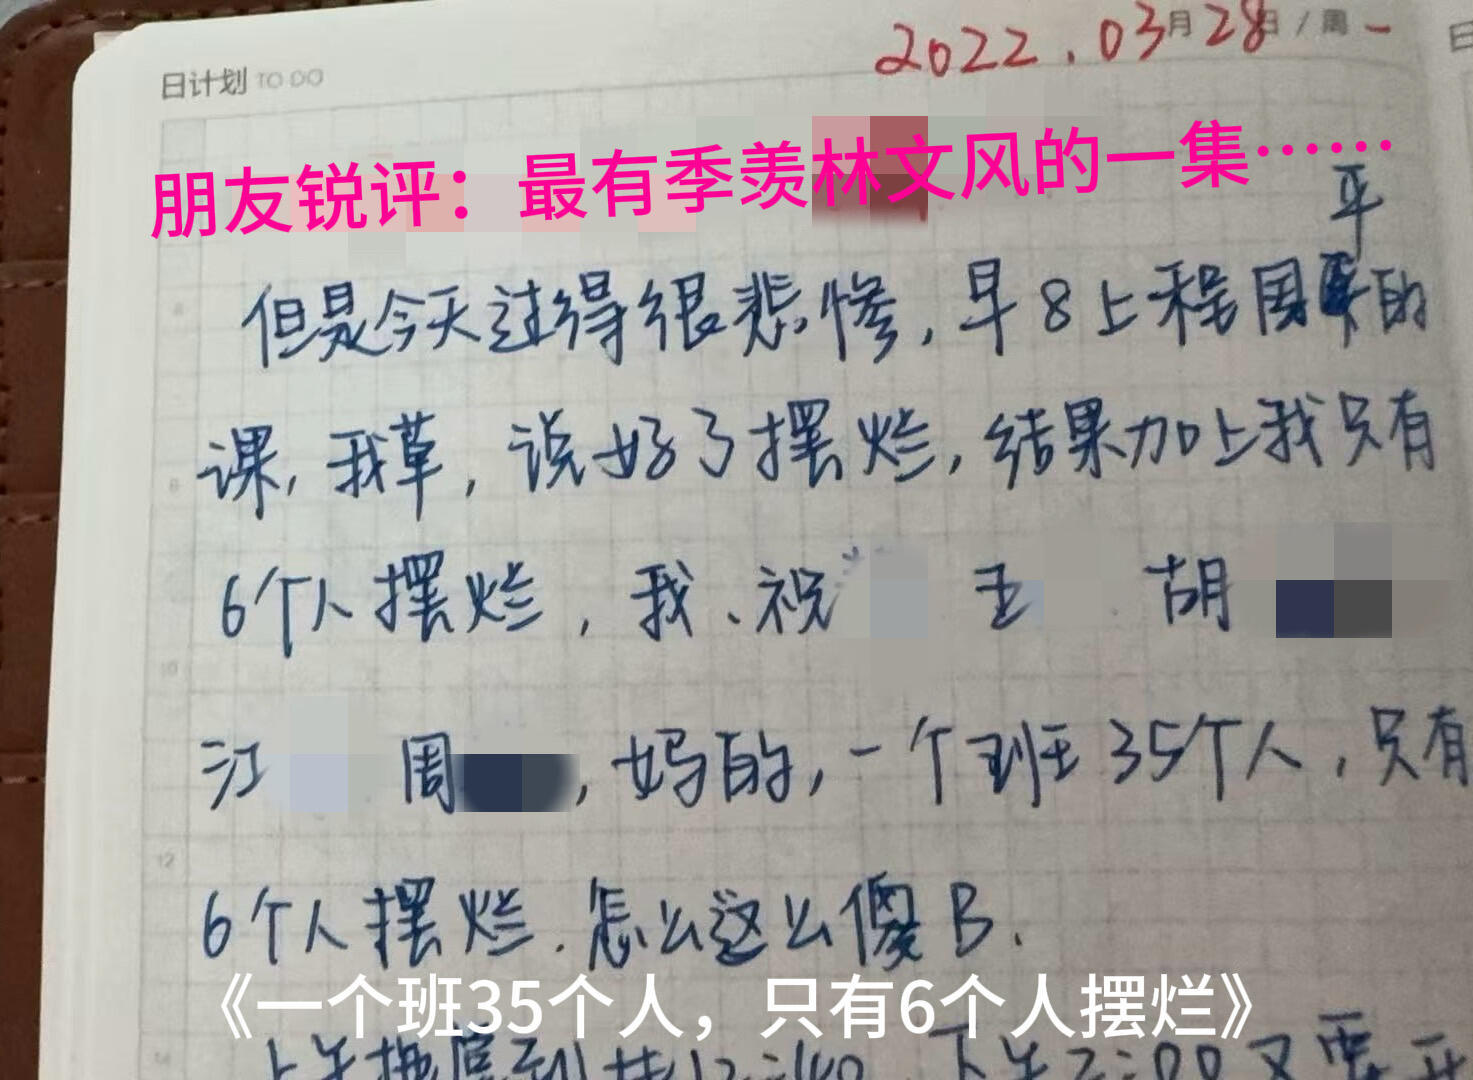 2022.03月28日/周一
日计划 TO DO
朋友锐评：最有季羡林文风的一集……
平
但是今天过得很悲惨，早8上程国的
课，我草，说好了摆烂，结果加上我只有
6个人摆烂，我、祝 王 胡
江 周 ，妈的，一个班35个人，只有
6个人摆烂.怎么这么傻B.
《一个班35个人，只有6个人摆烂》
上午拖 到 12:40 下午2:00又要开